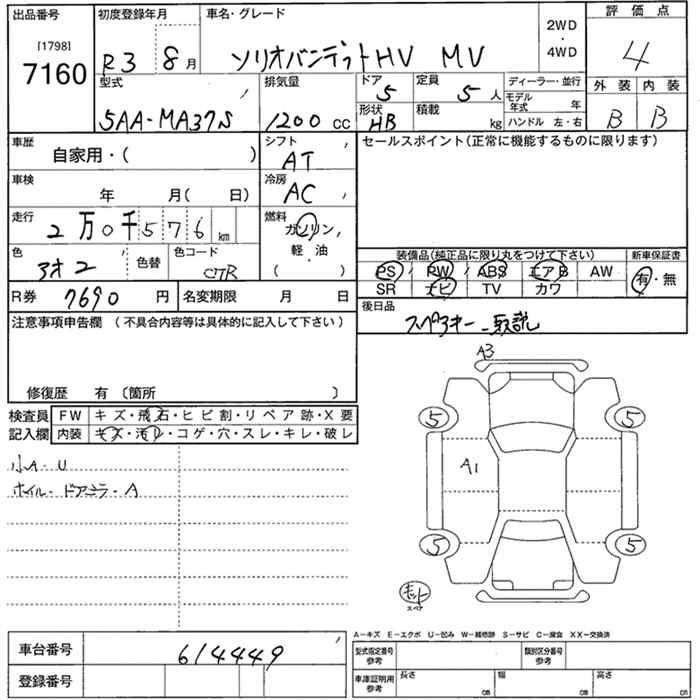 出品番号 初度登録年月 車名・グレード 2WD ・ 4WD 評価点
[1798]
7160 R3 8月 ソリオバンデットHV MV 4
型式 排気量 ドア 5 定員 5人 ディーラー・並行 外装 内装
5AA-MA37S 1200cc 形状 HB 積載 kg モデル年式 年 B B
ハンドル 左・右
車歴 自家用・( ) シフト AT セールスポイント(正常に機能するものに限ります)
車検 年 月( 日) 冷房 AC
走行 2万0千576km 燃料 ガソリン, 軽・油 ( )
色 アオ2 色替 色コード CTR 装備品(純正品に限り丸をつけて下さい) 新車保証書
PS PW ABS エアB AW 有・無
SR ナビ TV カワ
R券 7690円 名変期限 月 日 後日品
注意事項申告欄(不具合内容等は具体的に記入して下さい) スペアキー 取説
修復歴 有〔箇所 〕
検査員 FW キズ・飛石・ヒビ割・リペア跡・X要
記入欄 内装 キズ・汚レ・コゲ・穴・スレ・キレ・破レ
小A・U
ホイル・ドアミラ・A
A3
5 5
A1
5 5
スペア
A-キズ E-エクボ U-凹み W-補修跡 S-サビ C-腐食 XX-交換済
車台番号 614449 型式指定番号 参考 類別区分番号 参考
登録番号 車庫証明用 参考 長さ cm 幅 cm 高さ cm